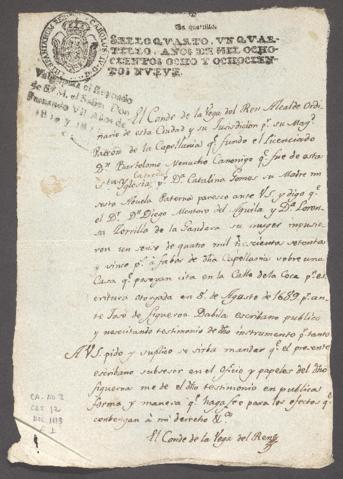 Un quartillo.
SELLO QUARTO, UN QUAR-
TILLO, AÑOS DE MIL OCHO-
CIENTOS OCHO Y OCHOCIEN-
TOS NUEVE.
Valga para el Reynado
de S. M. el Señor Don
Fernando VII Años de
1810 y 1811
El Conde de la Vega del Ren Alcalde Ordi-
nario de esta Ciudad y su Jurisdicion pr. su Magd.
Patrón de la Capellania qe. fundo el Licenciado
Dn. Bartolome Menacho Canonigo qe. fue de esta
Sta. Yglesia, y Da. Catalina Gomes su Madre mi
Catedral
Abuela Paterna paresco ante VS. y digo qe.
el Dr. Dn. Diego Montero del Aguila y Da. Loren-
sa Zorrilla de la Gandara su muger impusie-
ron un senso de quatro mil setenta
y sinco ps. á fabor de dha Capellania sobre una
Casa qe. poseyan cita en la Calle de la Coca pr. es-
critura otorgada en 5 de Agosto de 1689 pr. an-
te José de Figueroa Dabila escribano publico
y nesecitando testimonio de dho instrumento pr. tanto
A VS. pido y suplico se sirba mandar qe. el presente
escribano subsesor en el Oficio y papeles del dho
Figueroa me dé el dho testimonio en publica
forma y manera qe. haga fee para los efectos qe.
combengan á mi derecho &c.
El Conde de la Vega del Ren
CA-AO 2
CAJ 12
DOC 1113
1